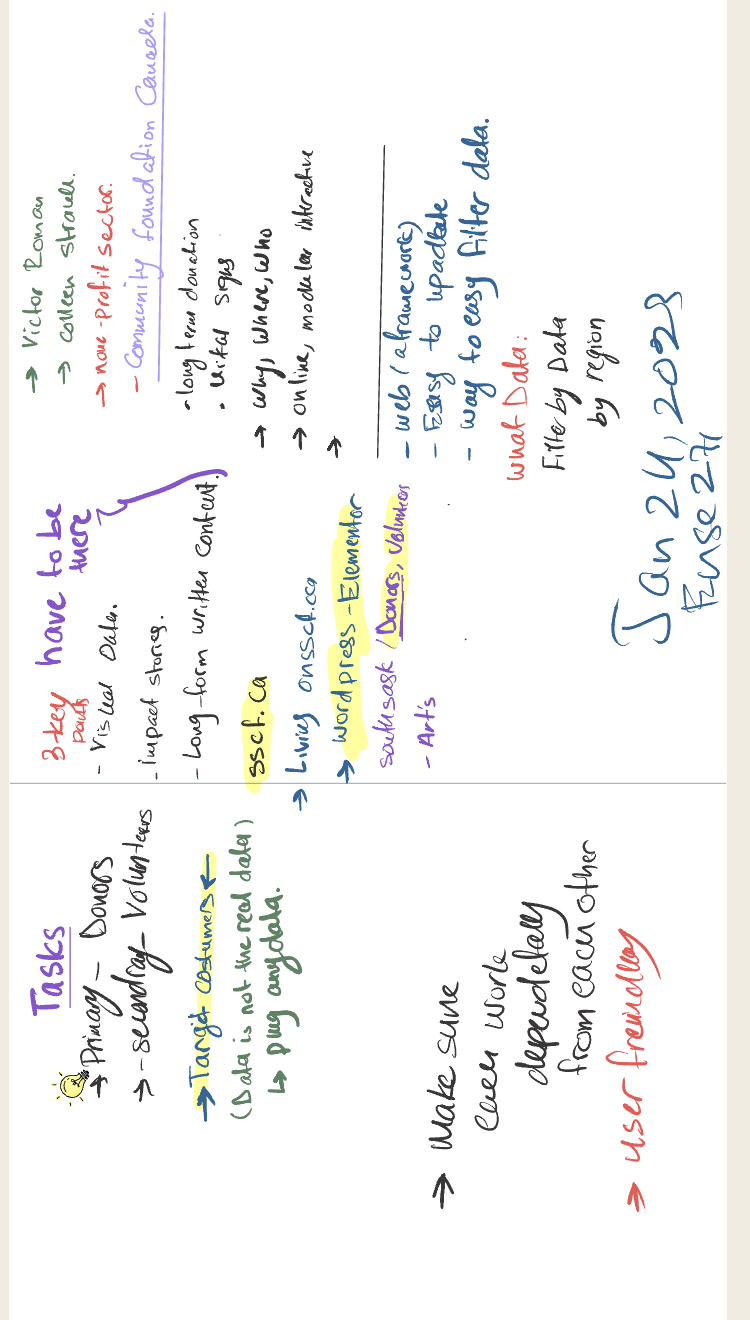 Tasks
→ Primary - Donors
→ - secondray - Volunteers
→ Targit costumers ←
(Data is not the real data)
↳ plug any data.
→ Make sure
each work
dependetally
from each other
→ user freindlly
3-key
parts
have to be
there
- Visual Data.
- impact stories.
- Long-form written content.
sscf.ca
→ Living onsscf.cca
→ wordpress - Elementor
south sask / Donors, Volunteers
- Art's
→ Victor Roman
→ colleen
→ none-profit sector.
- Community foundation Canada.
• long term donation
• Vital signs
→ why, where, who
→ online, modular interactive
→
- web (a framework)
- Easy to upadate
- way to easy filter data.
what Data:
Filter by Data
by region
Jan 24, 2023
Ense 271